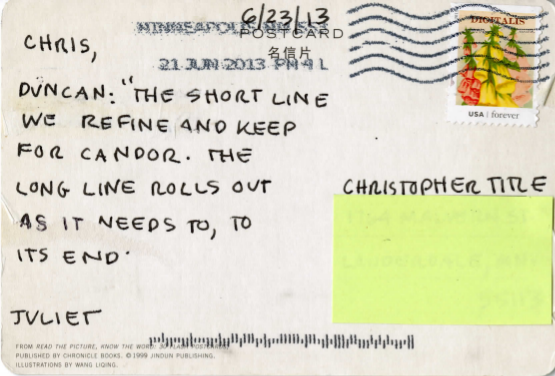 6/23/13
MINNEAPOLIS MN
POSTCARD
名信片
21 JUN 2013 PM 4 L
DIGITALIS
USA forever
CHRIS,
DUNCAN: "THE SHORT LINE
WE REFINE AND KEEP
FOR CANDOR. THE
LONG LINE ROLLS OUT
AS IT NEEDS TO, TO
ITS END.
JULIET
CHRISTOPHER TITLE
FROM READ THE PICTURE, KNOW THE WORD: 30 FLASH POSTCARDS
PUBLISHED BY CHRONICLE BOOKS. © 1999 JINDUN PUBLISHING.
ILLUSTRATIONS BY WANG LIQING.